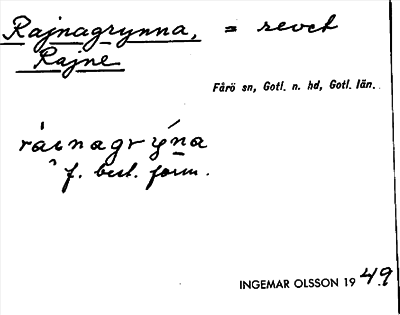 Rajnagrynna, = revet
Rajne
Fårö sn, Gotl. n. hd, Gotl. län.
ráinagrýna
f. best. form.
INGEMAR OLSSON 1949